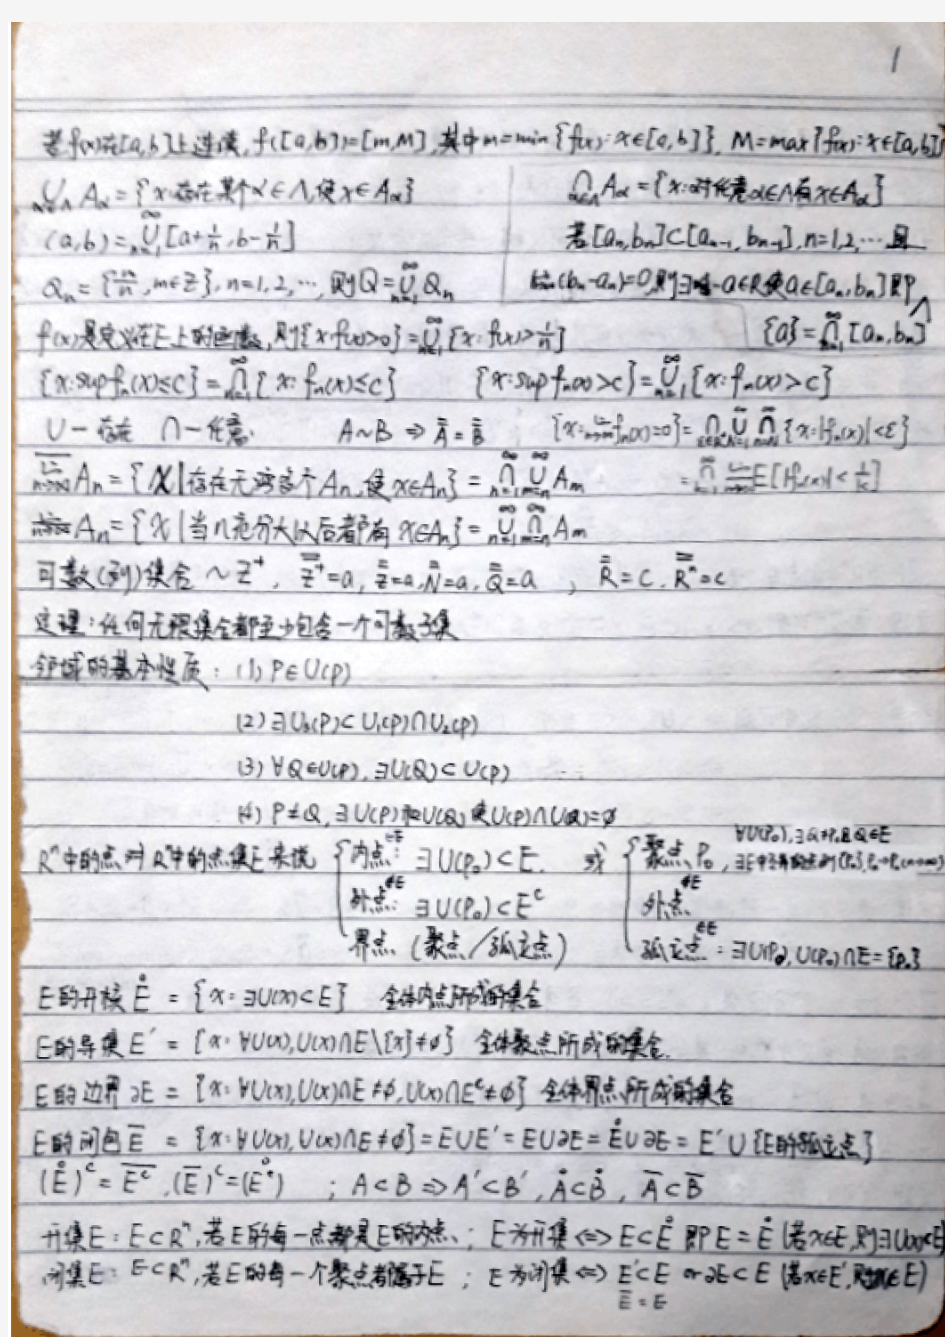 1
若f(x)在[a,b]上连续, f([a,b])=[m,M], 其中m=min{f(x):x∈[a,b]}, M=max{f(x):x∈[a,b]}
∪_{α∈Λ} Aα = {x:存在某个α∈Λ,使x∈Aα}
∩_{α∈Λ} Aα = {x:对任意α∈Λ有x∈Aα}
(a,b) = ∪_{n=1}^∞ [a+1/n, b-1/n]
若[an,bn]⊂[an-1,bn-1], n=1,2,… 且
Qn = {m/n, m∈Z}, n=1,2,…, 则Q=∪_{n=1}^∞ Qn
lim(bn-an)=0, 则∃唯一a∈R使a∈[an,bn]即
f(x)是定义在E上的函数, 则{x:f(x)>0}=∪_{n=1}^∞{x:f(x)>1/n}
{a}=∩_{n=1}^∞[an,bn]
{x:sup fn(x)≤c} = ∩_{n=1}^∞ {x:fn(x)≤c} {x:sup fn(x)>c} = ∪_{n=1}^∞ {x:fn(x)>c}
∪—存在 ∩—任意. A~B ⇒ A̿ = B̿ {x:lim_{n→∞} fn(x)=0} = ∩_{ε∈R⁺} ∪_{N=1}^∞ ∩_{n=N}^∞ {x:|fn(x)|<ε}
\overline{lim}_{n→∞} An = {x|存在无穷多个An,使x∈An} = ∩_{n=1}^∞ ∪_{m=n}^∞ Am
= ∩_{k=1}^∞ lim_{n→∞} E[|fn(x)|<1/k]
\underline{lim}_{n→∞} An = {x|当n充分大以后都有x∈An} = ∪_{n=1}^∞ ∩_{m=n}^∞ Am
可数(列)集合 ~ Z⁺, Z̿⁺=a, Z̿=a, N̿=a, Q̿=a ; R̿=c, R̿ⁿ=c
定理:任何无限集合都至少包含一个可数子集
邻域的基本性质: (1) P∈U(P)
(2) ∃U₃(P)⊂U₁(P)∩U₂(P)
(3) ∀Q∈U(P), ∃U(Q)⊂U(P)
(4) P≠Q, ∃U(P)和U(Q) 使U(P)∩U(Q)=∅
Rⁿ中的点对Rⁿ中的点集E来说 { 内点:∈E ∃U(P₀)⊂E. 或 { 聚点P₀ ∀U(P₀),∃Q≠P₀且Q∈E
外点:∉E ∃U(P₀)⊂E^c 外点∉E
界点 (聚点/孤立点) 孤立点∈E : ∃U(P₀), U(P₀)∩E={P₀}
E的开核 E̊ = {x:∃U(x)⊂E} 全体内点所形成的集合
E的导集 E′ = {x:∀U(x),U(x)∩E\{x}≠∅} 全体聚点所成的集合.
E的边界 ∂E = {x:∀U(x),U(x)∩E≠∅,U(x)∩E^c≠∅} 全体界点所成的集合
E的闭包 E̅ = {x:∀U(x),U(x)∩E≠∅} = E∪E′ = E∪∂E = E̊∪∂E = E′∪{E的孤立点}
(E̊)^c = \overline{E^c}, (E̅)^c = (E^c)° ; A⊂B ⇒ A′⊂B′, Å⊂B̊, A̅⊂B̅
开集E: E⊂Rⁿ,若E的每一点都是E的内点; E为开集⇔E⊂E̊ 即E=E̊ (若x∈E,则∃U(x)⊂E)
闭集E: E⊂Rⁿ,若E的每一个聚点都属于E ; E为闭集⇔E′⊂E or ∂E⊂E (若x∈E′,则x∈E)
E̅=E